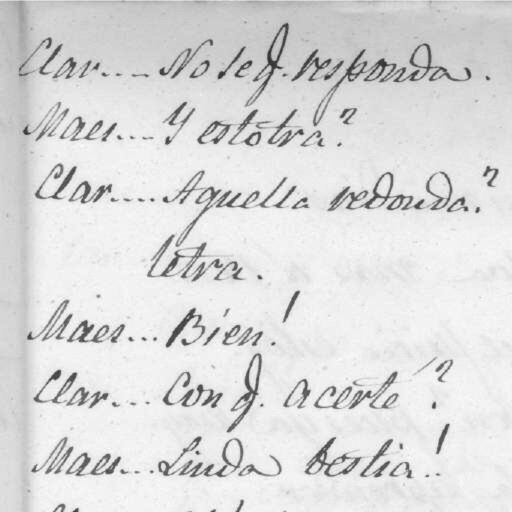 Clar.... No se q. responda.
Maes.... Y estotra?
Clar..... Aquella redonda?
letra.
Maes... Bien!
Clar.... Con q. acerté?
Maes... Linda bestia!